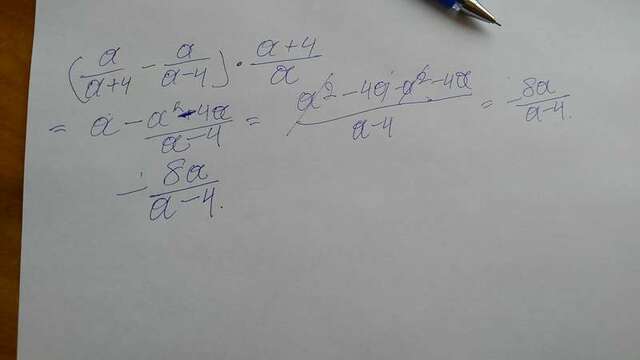 (a/a+4 - a/a-4) · a+4/a
= a - a²+4a/a-4 = a²-4a-a²-4a/a-4 = -8a/a-4.
- 8a/a-4.